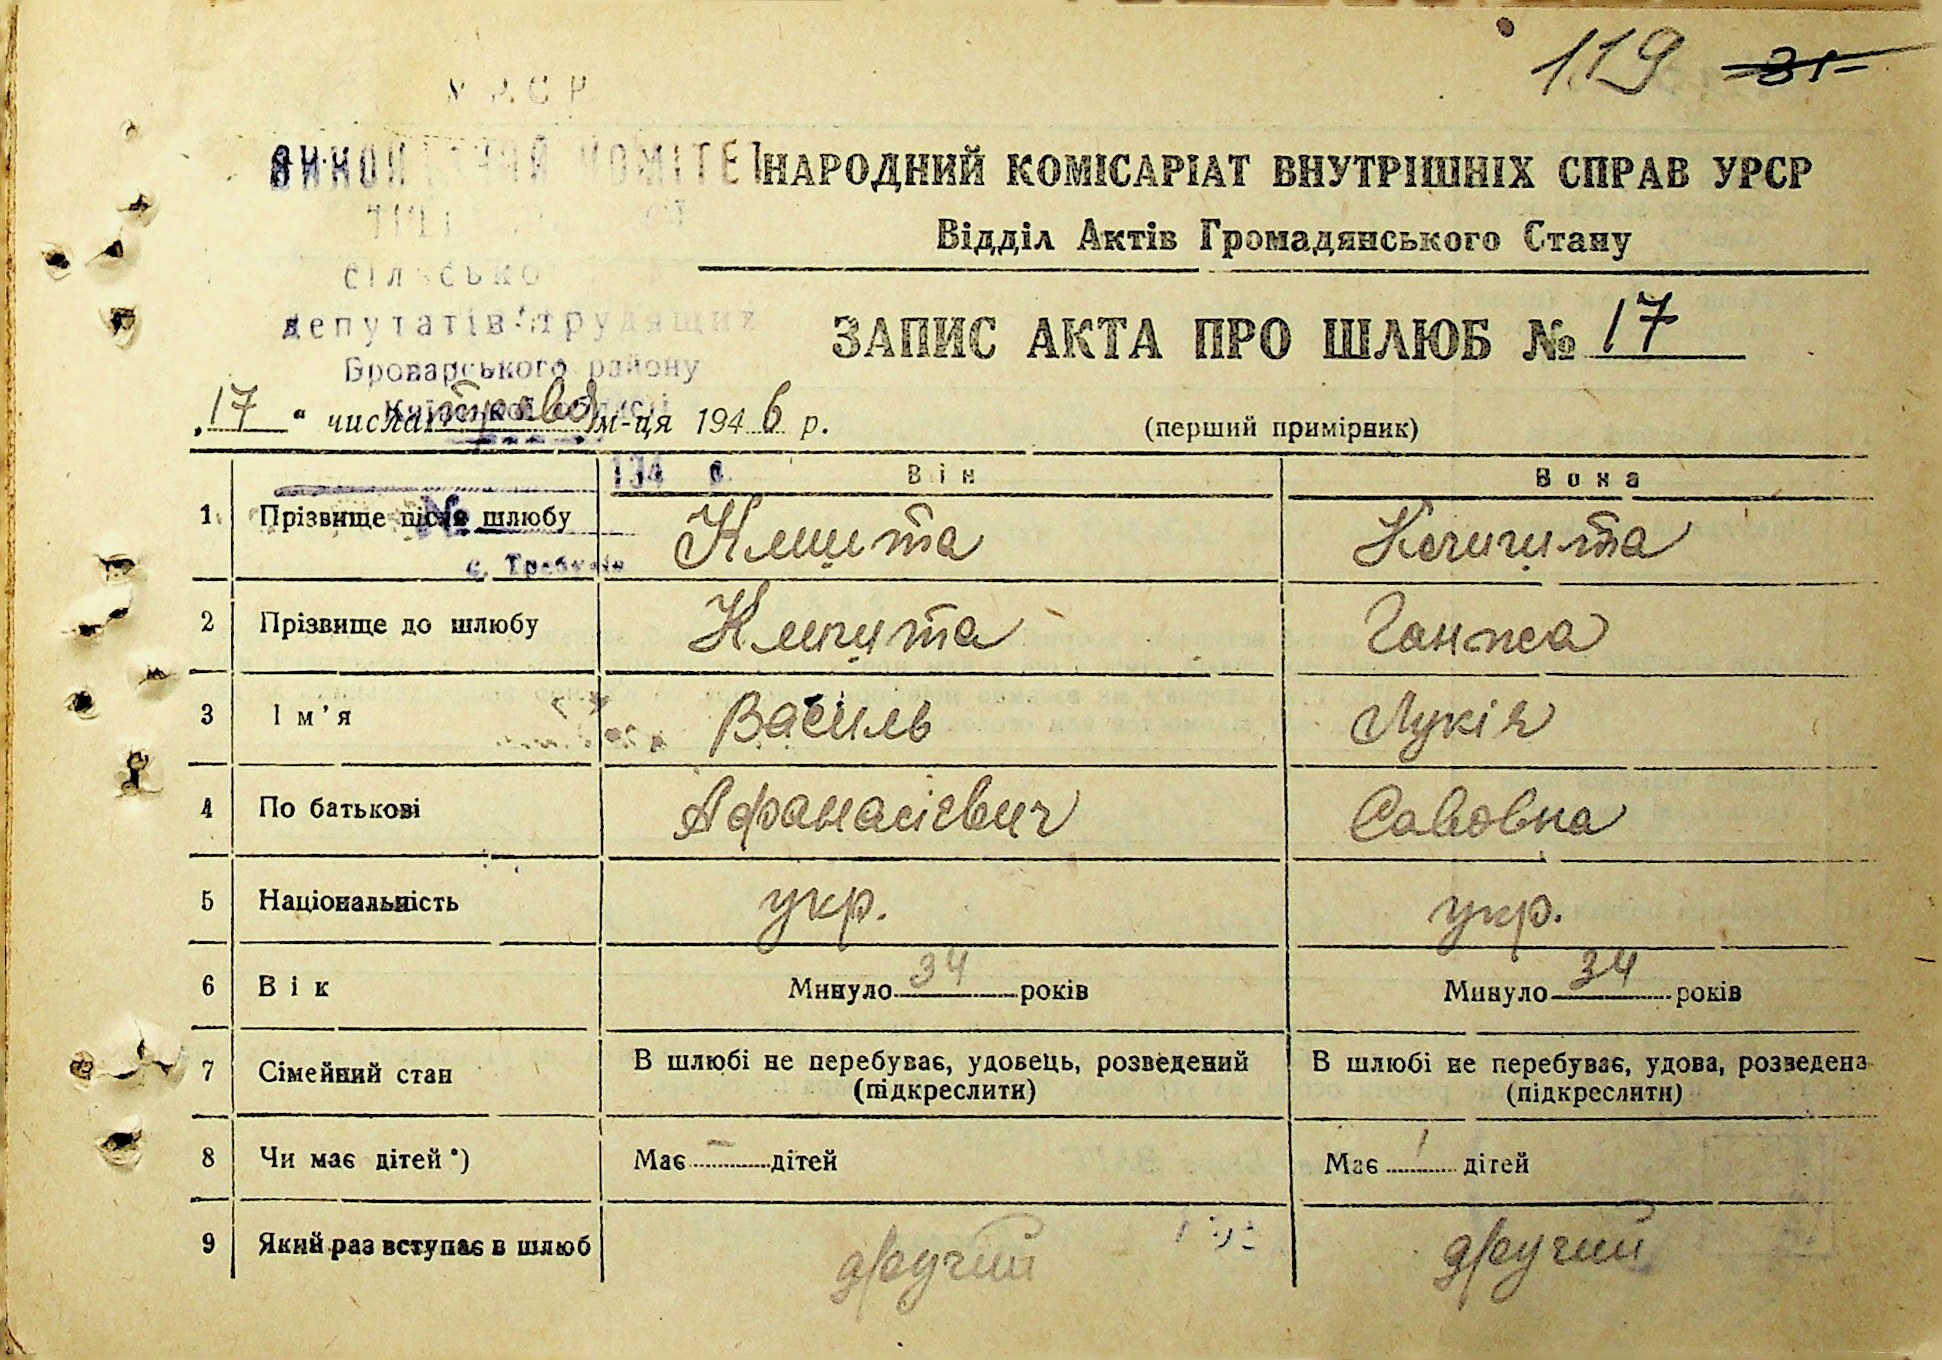 119 31
УРСР
ВИКОНАВЧИЙ КОМІТЕТ
НАРОДНИЙ КОМІСАРІАТ ВНУТРІШНІХ СПРАВ УРСР
Відділ Актів Громадянського Стану
сільської
депутатів трудящих
Броварського району
Київської області
ЗАПИС АКТА ПРО ШЛЮБ № 17
„17“ числа травня м-ця 1946 р.
(перший примірник)
194 р.
Він Вона
1 Прізвище після шлюбу Кмита Кмита
№
с. Требухів
2 Прізвище до шлюбу Кмита Ганжа
3 Ім’я Василь Лукія
4 По батькові Афанасієвич Савовна
5 Національність укр. укр.
6 Вік Минуло 34 років Минуло 34 років
7 Сімейний стан В шлюбі не перебуває, удовець, розведений (підкреслити) В шлюбі не перебуває, удова, розведена (підкреслити)
8 Чи має дітей*) Має — дітей Має 1 дітей
9 Який раз вступає в шлюб другий другий